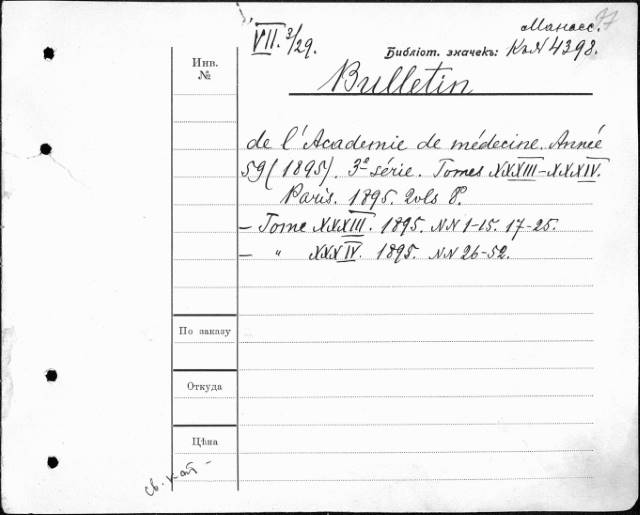 Манасс. 77
VII. 3/29.
Библіот. значекъ: КъN 4398.
Инв.
№
Bulletin
de l'Academie de médecine. Année
59 (1895). 3e série. Tomes XXXIII-XXXIV.
Paris. 1895. 2vls 8°.
— Tome XXXIII. 1895. NN 1-15. 17-25.
— " XXXIV. 1895. NN 26-52.
По заказу
Откуда
Цѣна
св. кат -